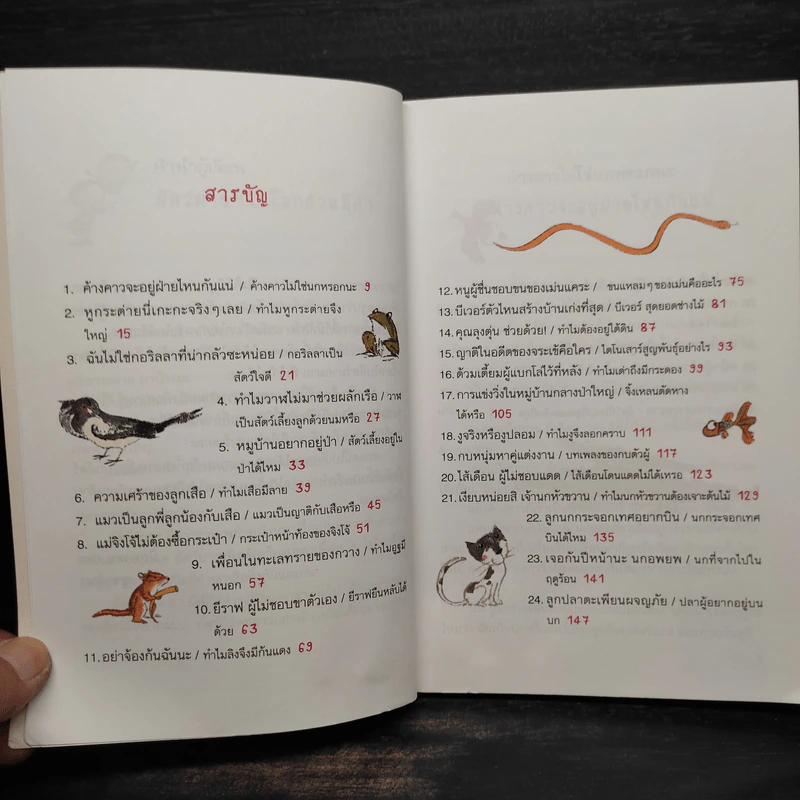 สารบัญ
1. ค้างคาวจะอยู่ฝ่ายไหนกันแน่ / ค้างคาวไม่ใช่นกหรอกนะ 9
2. หูกระต่ายนี่เกะกะจริงๆ เลย / ทำไมหูกระต่ายจึง
ใหญ่ 15
3. ฉันไม่ใช่กอริลลาที่น่ากลัวซะหน่อย / กอริลลาเป็น
สัตว์ใจดี 21
4. ทำไมวาฬไม่มาช่วยผลักเรือ / วาฬ
เป็นสัตว์เลี้ยงลูกด้วยนมหรือ 27
5. หมูบ้านอยากอยู่ป่า / สัตว์เลี้ยงอยู่ใน
ป่าได้ไหม 33
6. ความเศร้าของลูกเสือ / ทำไมเสือมีลาย 39
7. แมวเป็นลูกพี่ลูกน้องกับเสือ / แมวเป็นญาติกับเสือหรือ 45
8. แม่จิงโจ้ไม่ต้องซื้อกระเป๋า / กระเป๋าหน้าท้องของจิงโจ้ 51
9. เพื่อนในทะเลทรายของกวาง / ทำไมอูฐมี
หนอก 57
10. ยีราฟ ผู้ไม่ชอบขาตัวเอง / ยีราฟยืนหลับได้
ด้วย 63
11. อย่าจ้องก้นฉันนะ / ทำไมลิงจึงมีก้นแดง 69
12. หนูผู้ชื่นชอบขนของเม่นแคระ / ขนแหลมๆ ของเม่นคืออะไร 75
13. บีเวอร์ตัวไหนสร้างบ้านเก่งที่สุด / บีเวอร์ สุดยอดช่างไม้ 81
14. คุณลุงตุ่น ช่วยด้วย! / ทำไมต้องอยู่ใต้ดิน 87
15. ญาติในอดีตของจระเข้คือใคร / ไดโนเสาร์สูญพันธุ์อย่างไร 93
16. ต้วมเตี้ยมผู้แบกโล่ไว้ที่หลัง / ทำไมเต่าถึงมีกระดอง 99
17. การแข่งวิ่งในหมู่บ้านกลางป่าใหญ่ / จิ้งเหลนตัดหาง
ได้หรือ 105
18. งูจริงหรืองูปลอม / ทำไมงูจึงลอกคราบ 111
19. กบหนุ่มหาคู่แต่งงาน / บทเพลงของกบตัวผู้ 117
20. ไส้เดือน ผู้ไม่ชอบแดด / ไส้เดือนโดนแดดไม่ได้เหรอ 123
21. เงียบหน่อยสิ เจ้านกหัวขวาน / ทำไมนกหัวขวานต้องเจาะต้นไม้ 129
22. ลูกนกกระจอกเทศอยากบิน / นกกระจอกเทศ
บินได้ไหม 135
23. เจอกันปีหน้านะ นกอพยพ / นกที่จากไปใน
ฤดูร้อน 141
24. ลูกปลาตะเพียนผจญภัย / ปลาผู้อยากอยู่บน
บก 147